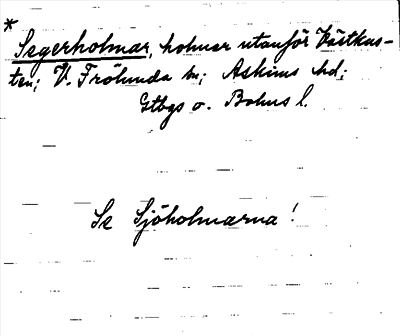 * Segerholmar, holmar utanför Västkus-
ten; V. Frölunda sn; Askims hd;
Gtbgs o. Bohus l.
Se Sjöholmarna!